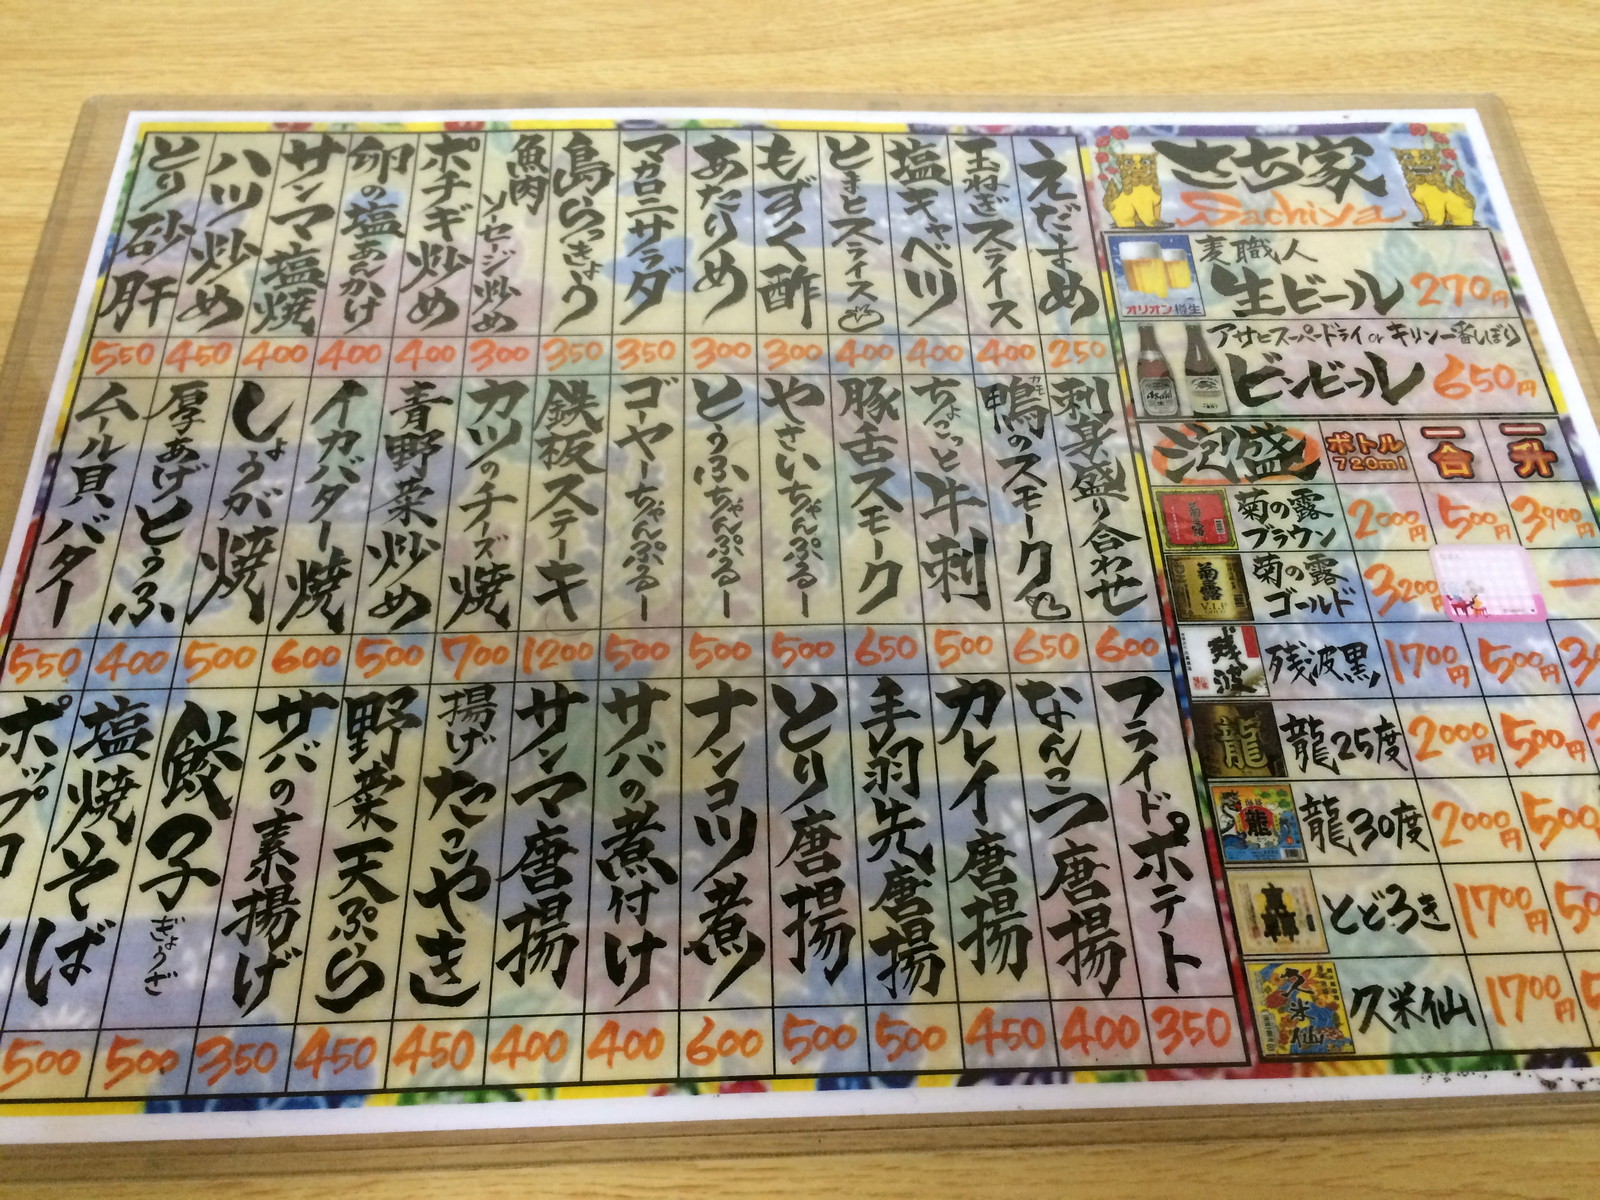 さち家
Sachiya
麦職人
生ビール 270円
オリオン樽生
アサヒスーパードライ or キリン一番しぼり
ビンビール 650円
泡盛 ボトル 720ml 一合 一升
菊の露 ブラウン 2000円 500円 3900円
菊の露 ゴールド 3200円
残波黒 1700円 500円
龍25度 2000円 500円
龍30度 2000円 500
とどろき 1700円 50
久米仙 1700円
えだまめ 250
玉ねぎスライス 400
塩キャベツ 400
とまとスライス 400
もずく酢 300
あたりめ 300
マカロニサラダ 350
島らっきょう 350
魚肉ソーセージ炒め 300
ポチギ炒め 400
卵の塩あんかけ 400
サンマ塩焼 400
ハツ炒め 450
とり砂肝 550
刺身盛り合わせ 600
鴨のスモーク 650
カモ
ちょこっと牛刺 500
豚舌スモーク 650
やさいちゃんぷるー 500
とうふちゃんぷるー 500
ゴーヤーちゃんぷるー 500
鉄板ステーキ 1200
カツのチーズ焼 700
青野菜炒め 500
イカバター焼 600
しょうが焼 500
厚あげとうふ 400
ムール貝バター 550
フライドポテト 350
なんこつ唐揚 400
カレイ唐揚 450
手羽先唐揚 500
とり唐揚 500
ナンコツ煮 600
サバの煮付け 400
サンマ唐揚 400
揚げたこやき 450
野菜天ぷら 450
サバの素揚げ 350
餃子 ぎょうざ 500
塩焼そば 500